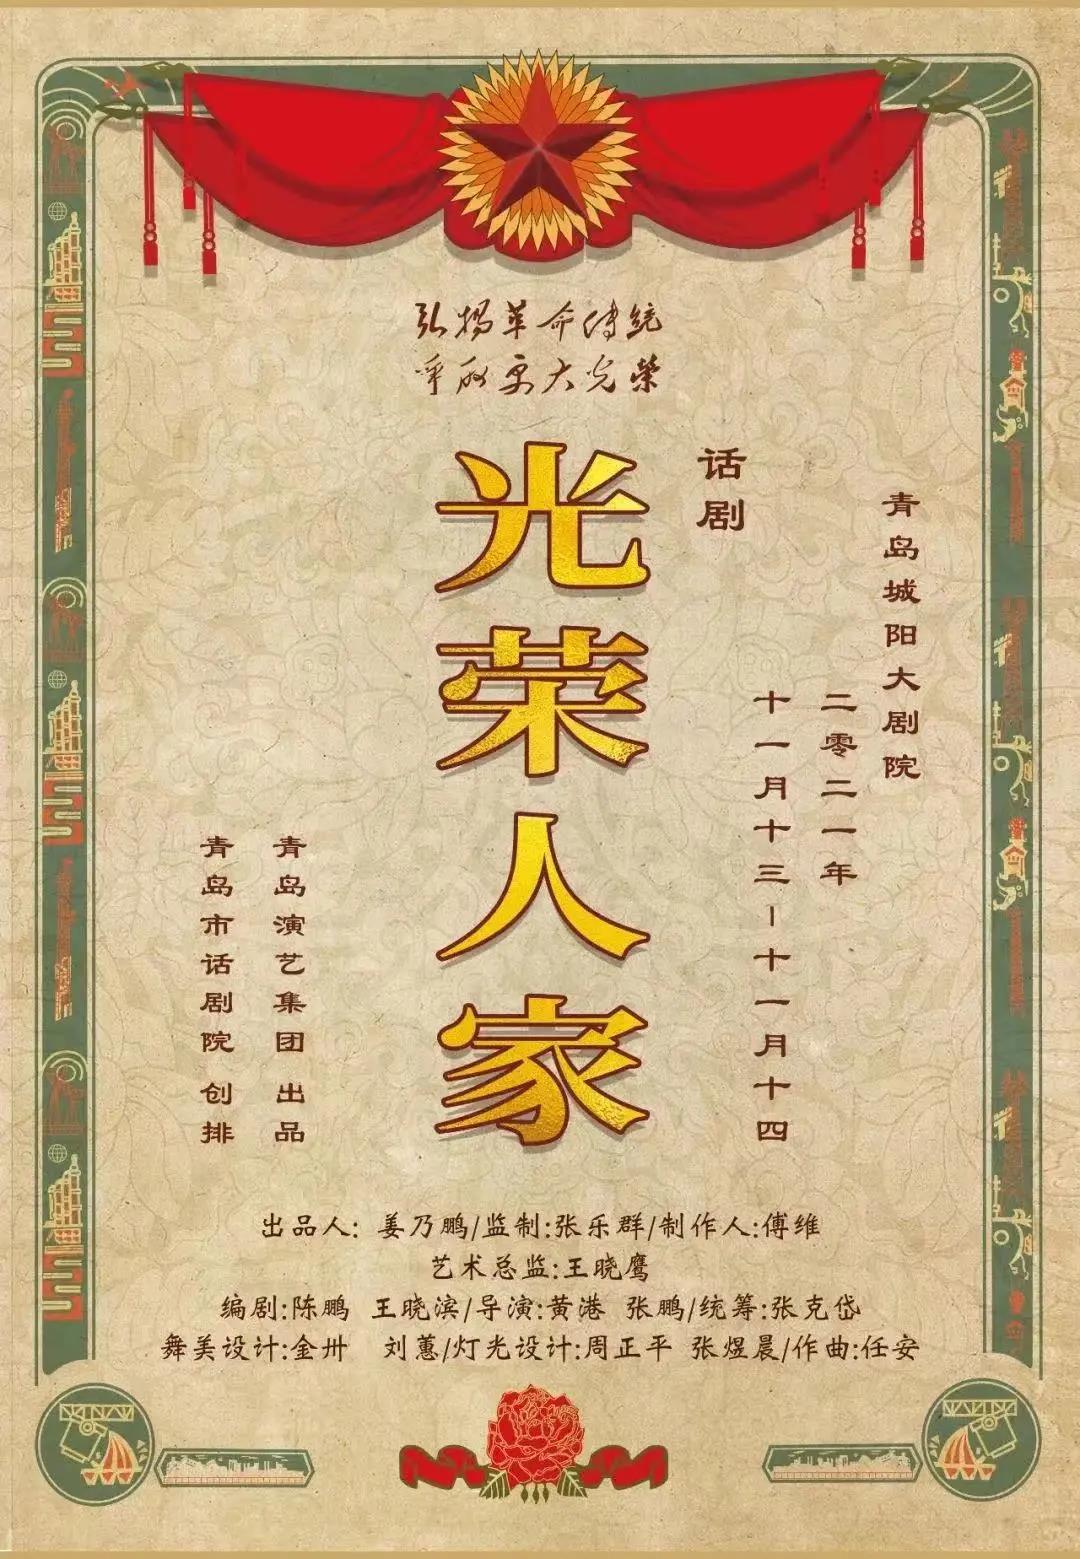 弘扬革命传统
争取更大光荣
话剧
光荣人家
青岛城阳大剧院
二零二一年
十一月十三-十一月十四
青岛演艺集团 出品
青岛市话剧院 创排
出品人: 姜乃鹏/监制:张乐群/制作人:傅维
艺术总监:王晓鹰
编剧:陈鹏 王晓滨/导演:黄港 张鹏/统筹:张克岱
舞美设计:金卅 刘蕙/灯光设计:周正平 张煜晨/作曲:任安